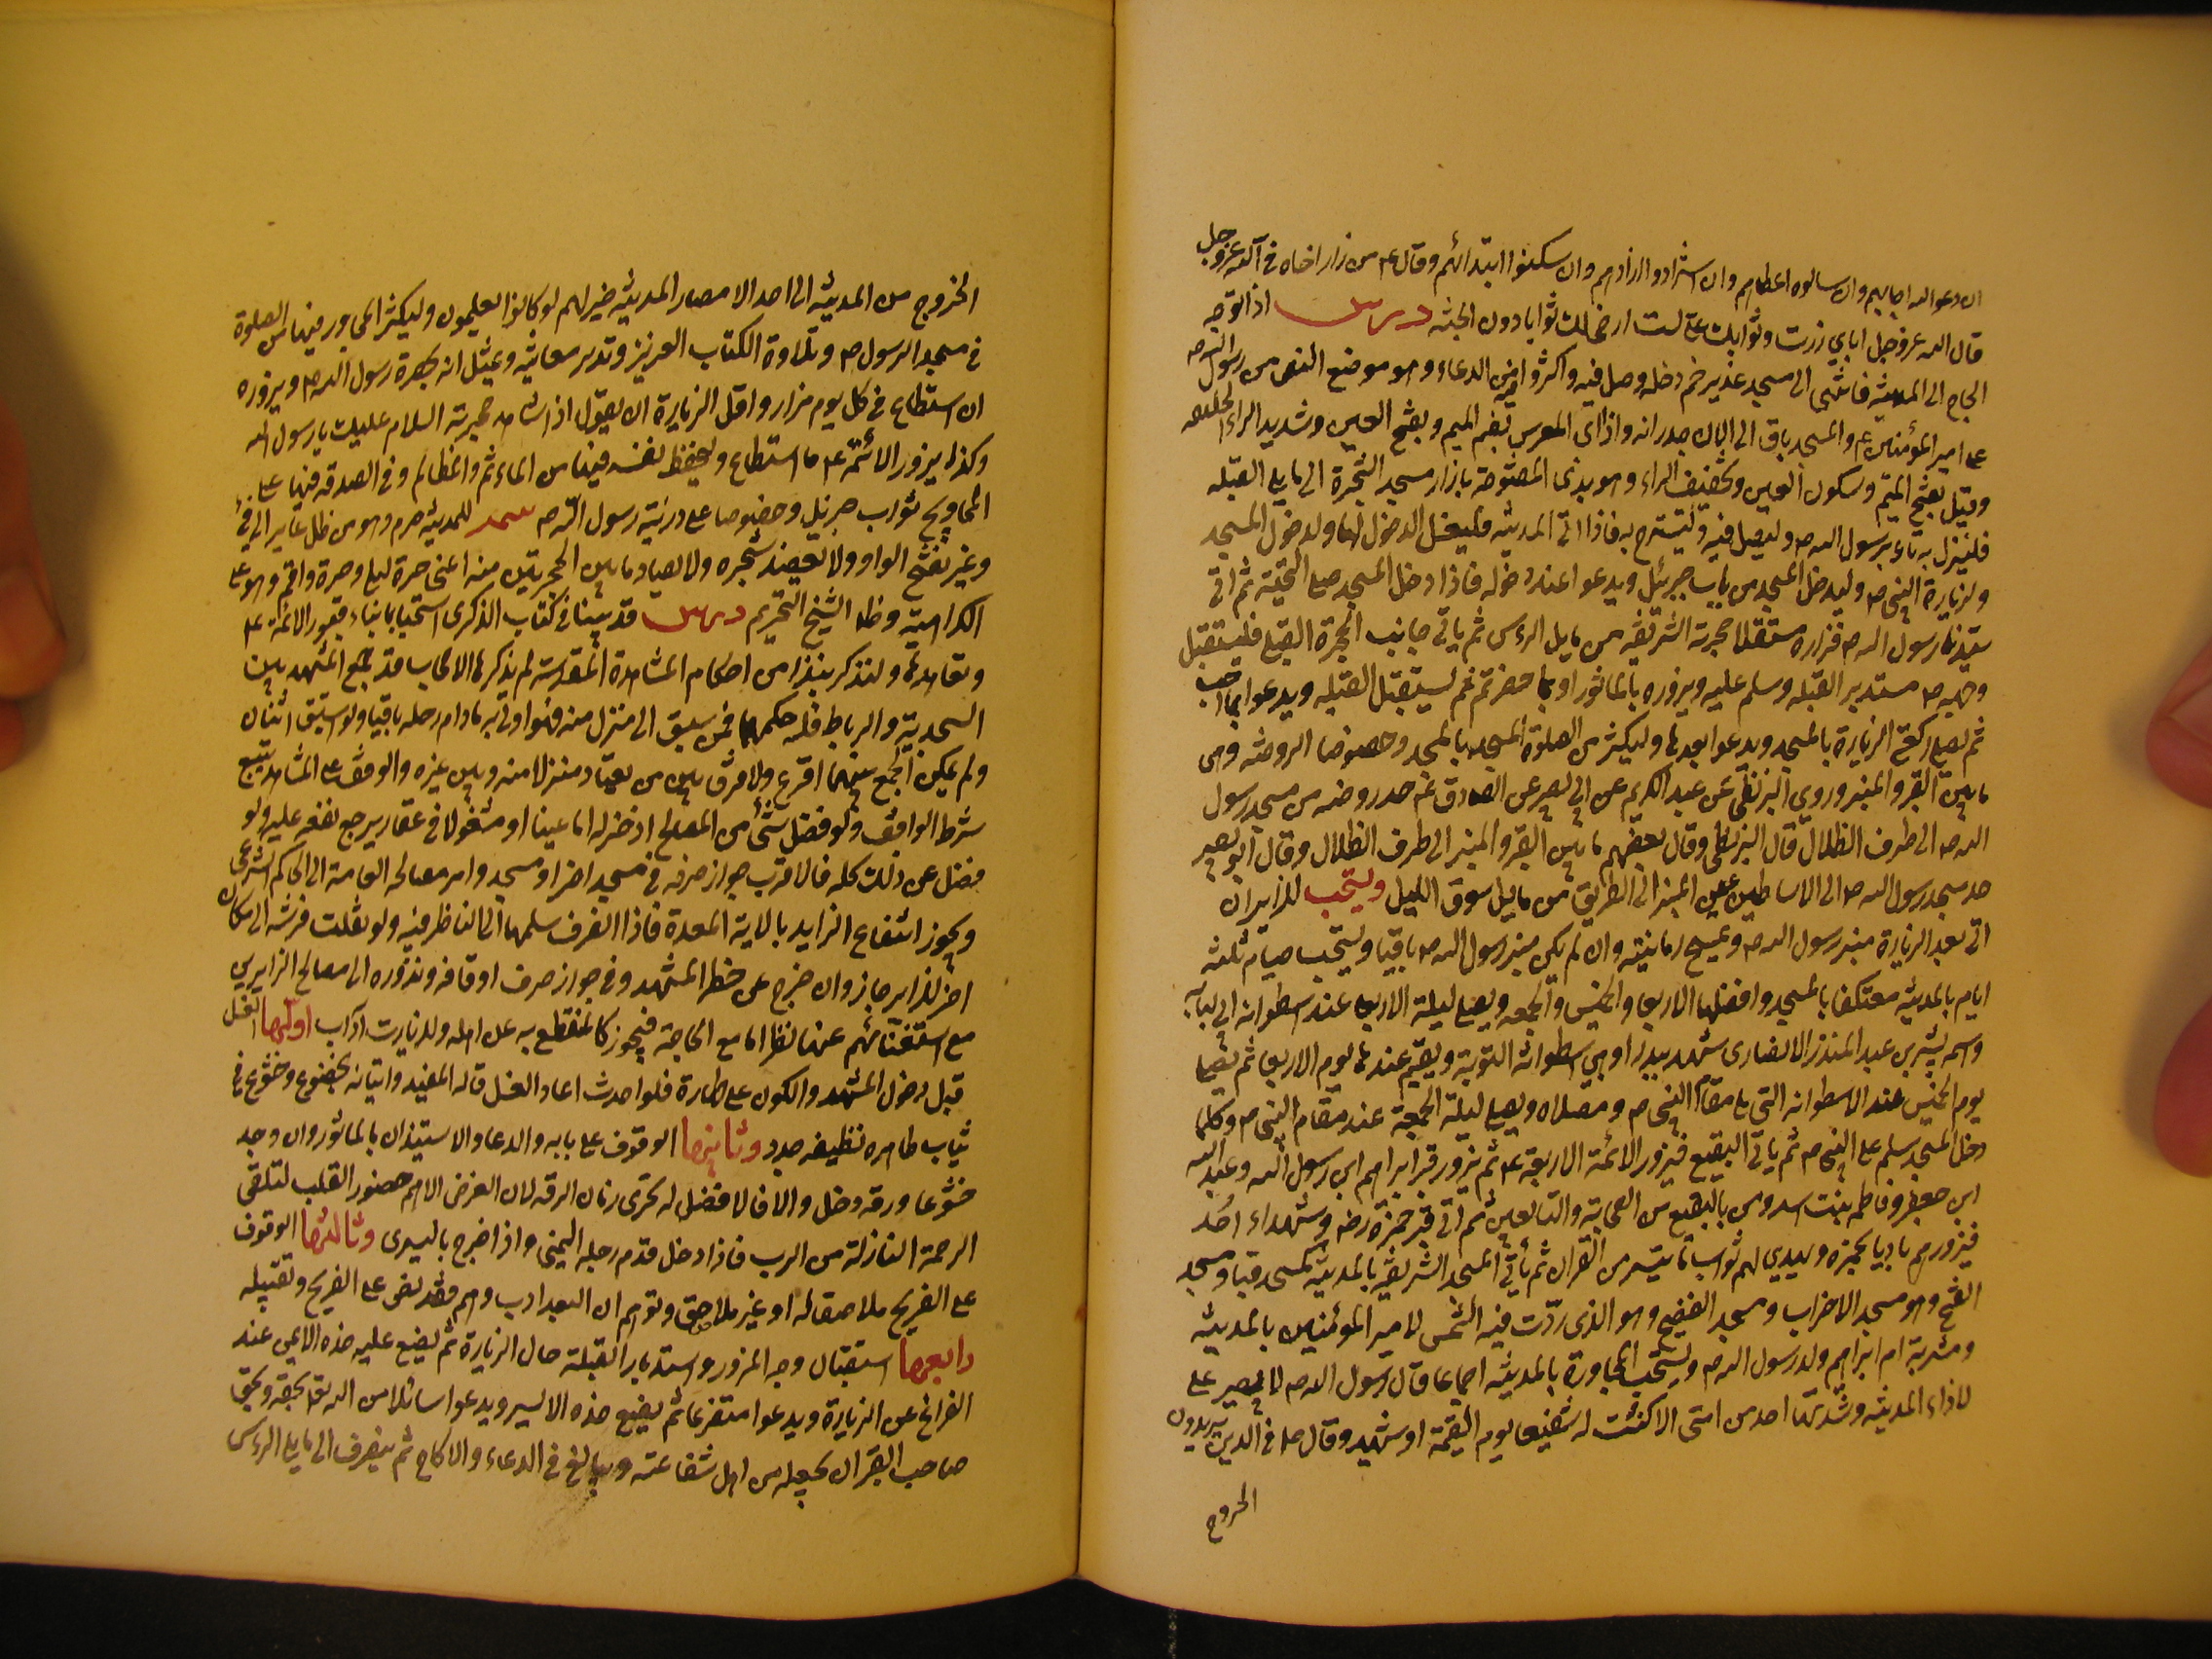 ان دعوا الله اجابهم وان سالوه اعطاهم وان استزادوا زادهم وان سكتوا ابتدائهم وقال ع من زار اخاه في الله عز وجل
قال الله عز وجل اياي زرت وثوابك علي لست ارضى لك ثوابا دون الجنة درس اذا توجه
الحاج الى المدينة فانتهى الى مسجد غدير خم دخله وصلى فيه واكثروا فيه من الدعاء وهو موضع النص من رسول الله ص
على امير المؤمنين ع والمسجد باق الى الان جدرانه واذا اتى المعرس بضم الميم وبفتح العين وتشديد الراء
وقيل بفتح الميم وسكون العين وتخفيف الراء وهو بذي الحليفة بازاء مسجد الشجرة الى ما يلي القبلة
فلينزل به تاسيا برسول الله ص وليصل فيه وليسترح به فاذا اتى المدينة فليغتسل لدخولها ولدخول المسجد
ولزيارة النبي ص وليدخل المسجد من باب جبرئيل ويدعوا عند دخوله فاذا دخل المسجد صلى التحية ثم اتى
سيدنا رسول الله ص فزاره مستقبلا حجرته الشريفة مما يلي الراس ثم ياتي جانب الحجرة القبلي فليستقبل
وجهه ص مستدبر القبلة وسلم عليه ويزوره بالماثور او بما حضر ثم يستقبل القبلة ويدعوا بما احب
ثم يصلي ركعتي الزيارة بالمسجد ويدعوا بعدها وليكثر من الصلوة بالمسجد وخصوصا الروضة وهي
ما بين القبر والمنبر وروي البزنطي عن عبد الكريم عن ابي بصير عن الصادق ع حد روضة من مسجد رسول
الله ص الى طرف الظلال قال البزنطي وقال بعضهم ما بين القبر والمنبر الى طرف الظلال وقال ابو بصير
حد مسجد رسول الله ص الى الاساطين عن يمين المنبر الى الطريق مما يلي سوق الليل ويستحب للزاير ان
اتى بعد الزيارة منبر رسول الله ص ويمسح رمانتيه وان لم يكن منبر رسول الله ص باقيا ويستحب صيام ثلثة
ايام بالمدينة معتكفا بالمسجد وافضلها الاربعا والخميس والجمعة ويصلي ليلة الاربعا عند اسطوانة ابي لبابة
واسمه بشير بن عبد المنذر الانصارى شهد بدرا وهي اسطوانة التوبة ويقيم عندها يوم الاربعا ثم يصلي
يوم الخميس عند الاسطوانة التي يلي مقام النبي ص ومصلاه ويصلي ليلة الجمعة عند مقام النبي ص وكلما
دخل المسجد سلم على النبي ص ثم ياتي البقيع فيزور الائمة الاربعة ع ثم يزور قبر ابراهيم ابن رسول الله وعبد الله
ابن جعفر وفاطمة بنت اسد ومن بالبقيع من الصحابة والتابعين ثم اتى قبر حمزة رضه وشهداء احد
فيزورهم باديا بحمزة ويهدي لهم ثواب ما تيسر من القران ثم ياتي المسجد الشريفة بالمدينة كمسجد قبا ومسجد
الفتح وهو مسجد الاحزاب ومسجد الفضيخ وهو الذي ردت فيه الشمس لامير المؤمنين بالمدينة
ومشربة ام ابراهيم ولد رسول الله ص ويستحب المجاورة بالمدينة اجماعا قال رسول الله ص لا يصبر على
لاواء المدينة وشدتها احد من امتي الا كنت له شفيعا يوم القيمة او شهيد وقال ص في الذين يريدون
الخروج
الخروج من المدينة الى احد الامصار المدينة خير لهم لو كانوا يعلمون وليكثر المجاور فيها من الصلوة
في مسجد الرسول ص وتلاوة الكتاب العزيز وتدبر معانيه ويمثل انه بحضرة رسول الله ص ويزوره
ان استطاع في كل يوم مرار واقل الزيارة ان يقول اذا شاهد حجرته السلام عليك يا رسول الله
وكذلك يزور الائمة ع ما استطاع وليحفظ نفسه فيها من الماءثم والمظالم وفي الصدقة فيها على
المحاويج ثواب جزيل وخصوصا على ذرية رسول الله ص للمدينة حرم وهو من ظل عاير الى فيء
وعير بفتح الواو ولا يعضد شجره ولا يصاد ما بين الحرتين منه اعنى حرة ليلى وحرة واقم وهو على
الكراهية وظاهر الشيخ التحريم درس قد بينا في كتاب الذكرى استحباب بناء قبور الائمة ع
وتعاهدها ولنذكر نبذا من احكام المشاهدة المقدسة لم يذكرها الاصحاب قد جمع المشهد بين
المسجدية والرباط فله حكمهما فمن سبق الى منزل منه فهو اولى به ما دام رحله باقيا ولو استبق اثنان
ولم يمكن الجمع بينهما اقرع ولا فرق بين من يعتاد منزلا منه وبين غيره والوقف على المشاهد يتبع
شرط الواقف ولو فضل شئ من المصالح ادخر له اما عينا او مشغولا في عقار يرجع نفعه عليه ولو
فضل عن ذلك كله فالاقرب جواز صرفه في مسجد اخر او مسجد وامر مصالحه العامة الى الحاكم الشرعي
ويجوز انتفاع الزاير بالالة المعدة فاذا انصرف سلمها الى الناظر فيه ولو نقلت فرشه الى مكان
اخر للزاير جاز وان خرج عن خطه المشهد وفي جواز صرف اوقافه ونذوره الى مصالح الزايرين
مع استغنائهم عنها نظر اما مع الحاجة فيجوز كالمنقطع به عن اهله وللزيارت اداب اولها الغسل
قبل دخول المشهد والكون على طهارة فلو احدث اعاد الغسل قاله المفيد واتيانه بخضوع وخشوع في
ثياب طاهره نظيفه جدد وثانيها الوقوف على بابه والدعا والاستيذان بالماثور وان وجد
خشوعا ورقة دخل والا فالافضل له تحرى زمان الرقة لان الغرض الاهم حضور القلب لتلقي
الرحمة النازلة من الرب فاذا دخل قدم رجله اليمنى واذا خرج باليسرى وثالثها الوقوف
على الضريح ملاصقا له او غير ملاصق وتوهم ان البعد ادب وهم فقد نص على الضريح وتقبيله
رابعها استقبال وجه المزور واستدبار القبلة حال الزيارة ثم يضع عليه خده الايمن عند
الفراغ من الزيارة ويدعوا متضرعا ثم يضع خده الايسر ويدعوا سائلا من الله تع بحقه وبحق
صاحب القبر ان يجعله من اهل شفاعته ويبالغ في الدعاء والالحاح ثم ينصرف الى ما يلي الراس